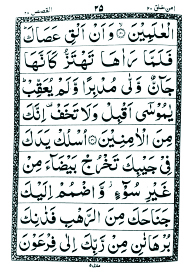 امن خلق ٢٠ ٢٥ القصص ٢٨
الْعٰلَمِيْنَ ۙ وَاَنْ اَلْقِ عَصَاكَ ؕ
فَلَمَّا رَاٰهَا تَهْتَزُّ كَاَنَّهَا
جَآنٌّ وَّلّٰى مُدْبِرًا وَّلَمْ يُعَقِّبْ ؕ
يٰمُوْسٰٓى اَقْبِلْ وَلَا تَخَفْ ۫ اِنَّكَ
مِنَ الْاٰمِنِيْنَ ۞ اُسْلُكْ يَدَكَ
فِيْ جَيْبِكَ تَخْرُجْ بَيْضَآءَ مِنْ
غَيْرِ سُوْٓءٍ ۫ وَّاضْمُمْ اِلَيْكَ
جَنَاحَكَ مِنَ الرَّهْبِ فَذٰنِكَ
بُرْهَانٰنِ مِنْ رَّبِّكَ اِلٰى فِرْعَوْنَ